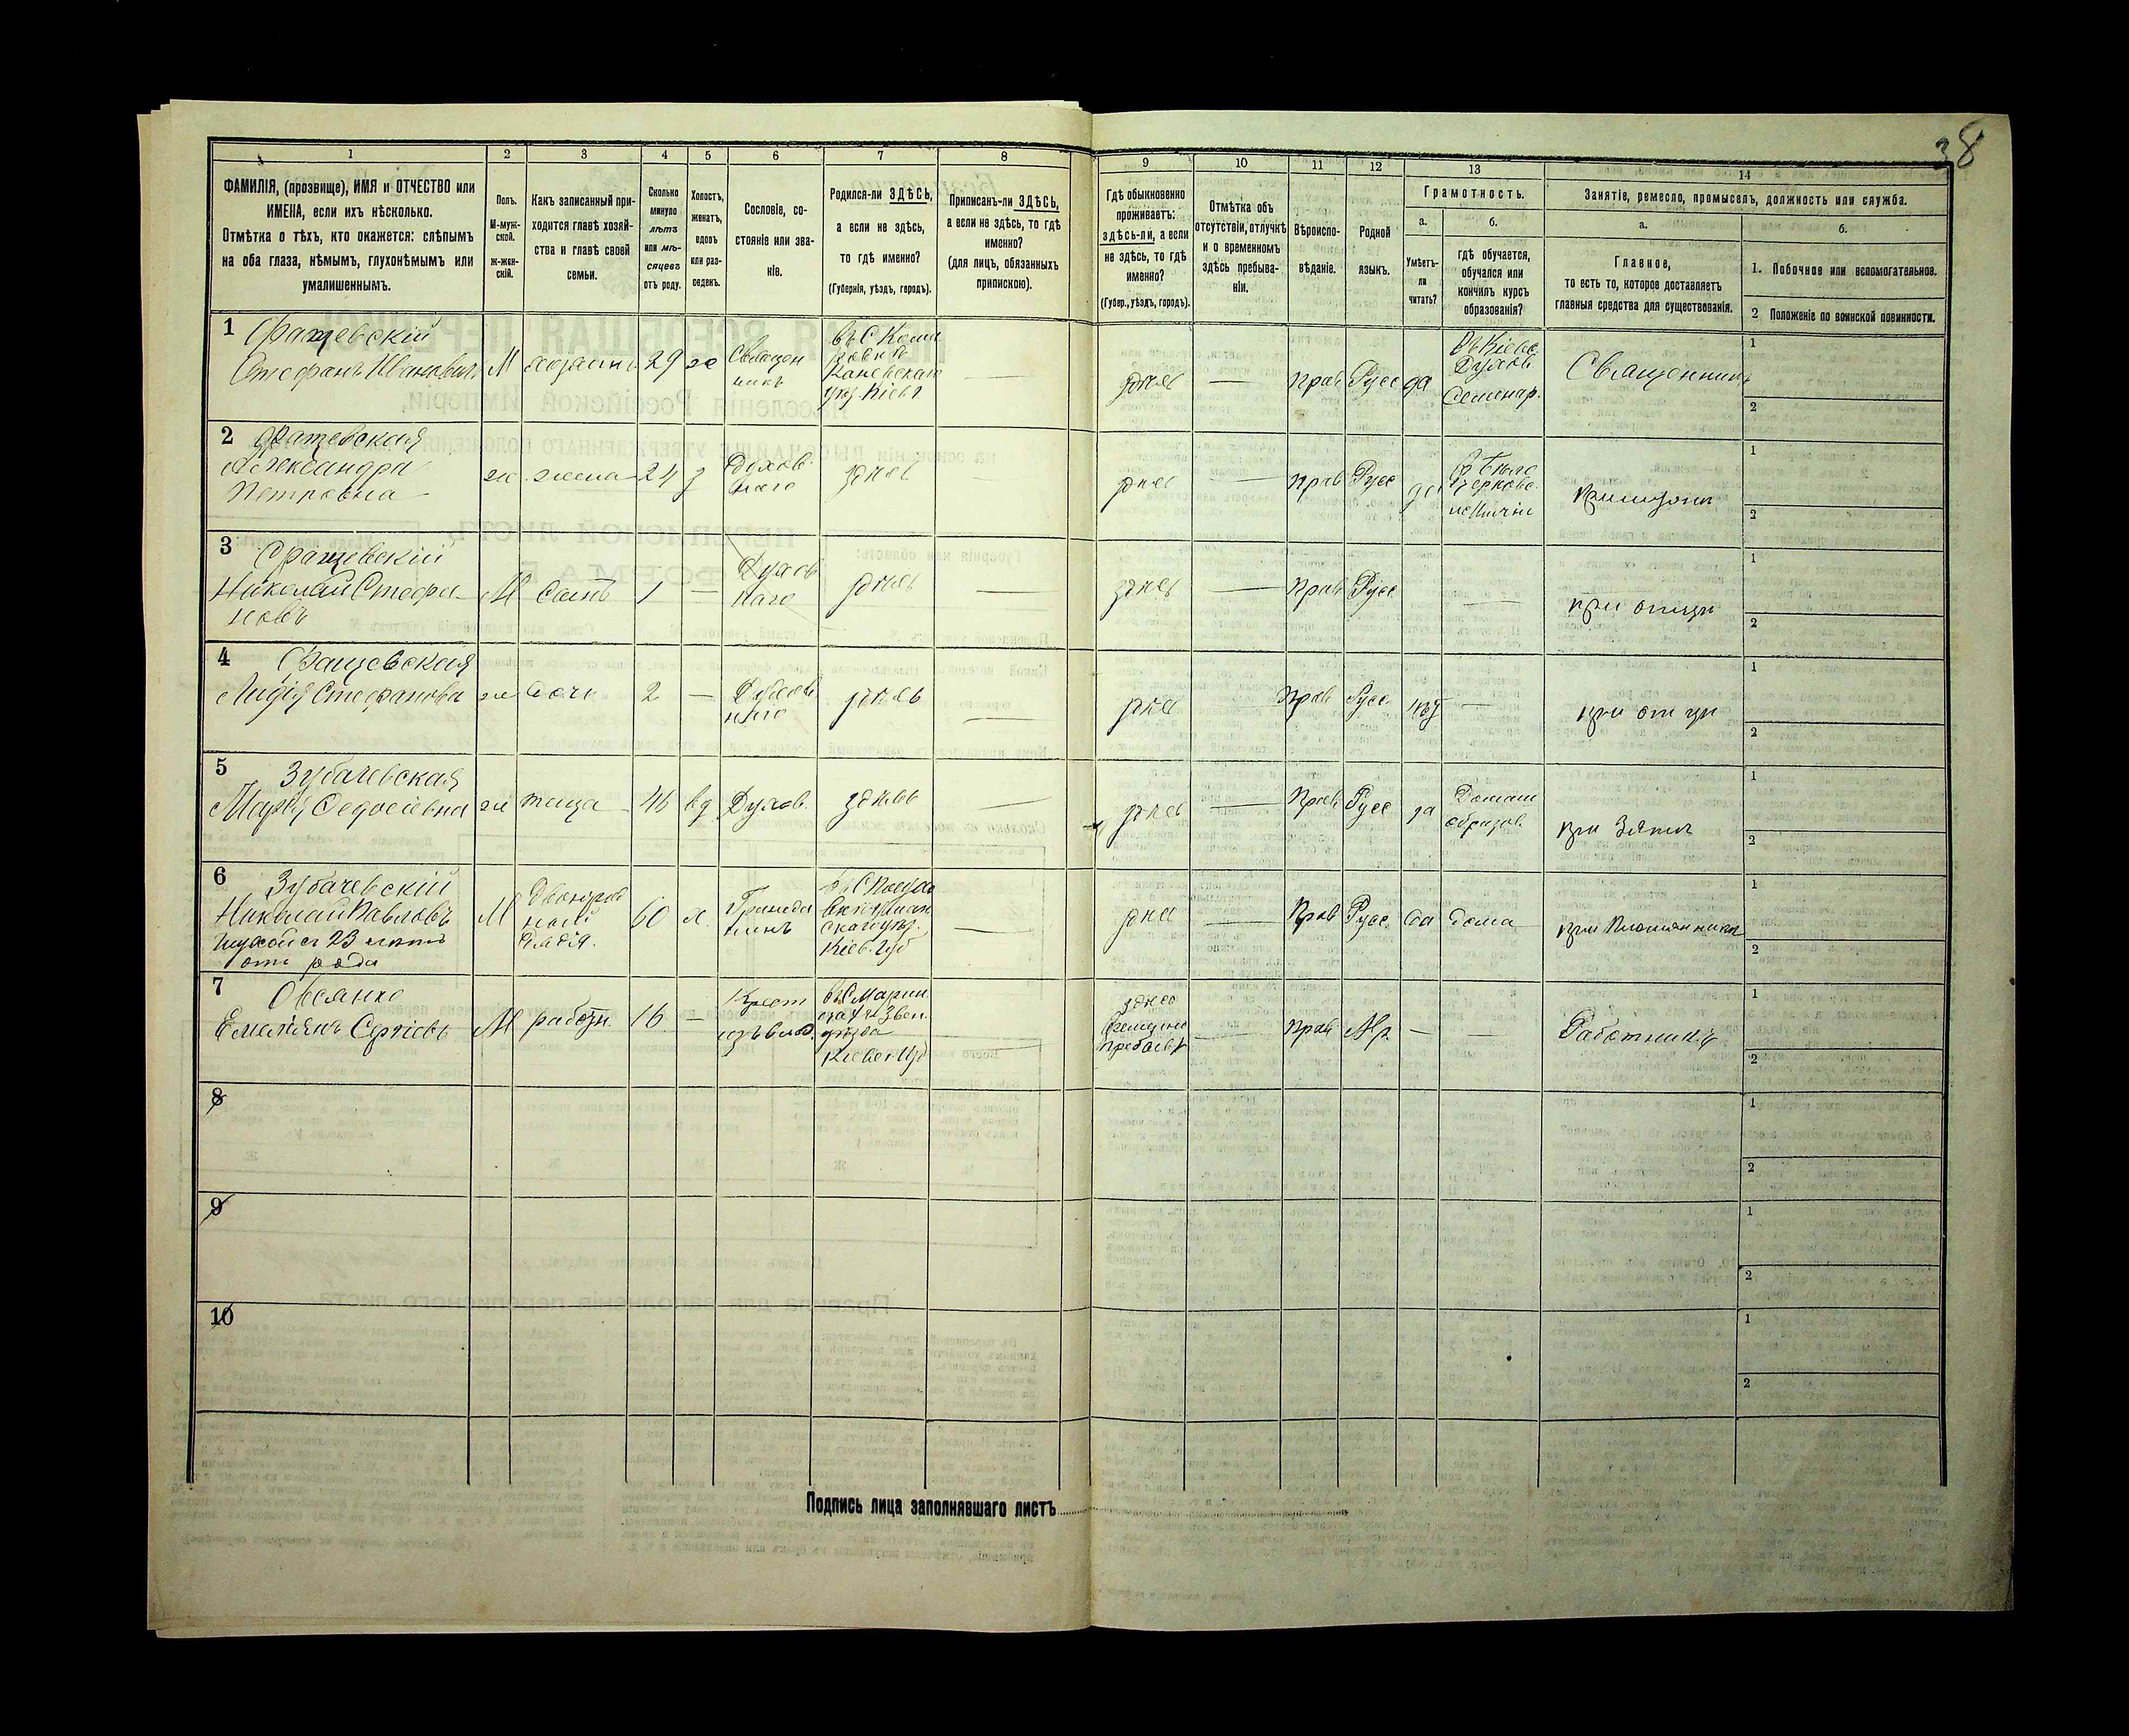 38
1
2
3
4
5
6
7
8
9
10
11
12
13
14
ФАМИЛІЯ, (прозвище), ИМЯ и ОТЧЕСТВО или
ИМЕНА, если ихъ нѣсколько.
Отмѣтка о тѣхъ, кто окажется: слѣпымъ
на оба глаза, нѣмымъ, глухонѣмымъ или
умалишеннымъ.
Полъ.
М-муж-
ской.
ж-жен-
скій.
Какъ записанный при-
ходится главѣ хозяй-
ства и главѣ своей
семьи.
Сколько
минуло
лѣтъ
или мѣ-
сяцевъ
отъ роду.
Холостъ,
женатъ,
вдовъ
или раз-
веденъ.
Сословіе, со-
стояніе или зва-
ніе.
Родился-ли ЗДѢСЬ,
а если не здѣсь,
то гдѣ именно?
(Губернія, уѣздъ, городъ).
Приписанъ-ли ЗДѢСЬ,
а если не здѣсь, то гдѣ
именно?
(для лицъ, обязанныхъ
припискою).
Гдѣ обыкновенно
проживаетъ:
здѣсь-ли, а если
не здѣсь, то гдѣ
именно?
(Губер., уѣздъ, городъ).
Отмѣтка объ
отсутствіи, отлучкѣ
и о временномъ
здѣсь пребыва-
ніи.
Вѣроиспо-
вѣданіе.
Родной
языкъ.
Грамотность.
а.
Умѣетъ-
ли
читать?
б.
гдѣ обучается,
обучался или
кончилъ курсъ
образованія?
Занятіе, ремесло, промыселъ, должность или служба.
а.
Главное,
то есть то, которое доставляетъ
главныя средства для существованія.
б.
1. Побочное или вспомогательное.
2 Положеніе по воинской повинности.
1 Фащевскій
Стефанъ Ивановичъ
М
хозяинъ
29
ж
Священ
никъ
Каневскаго
уѣз. Кіев.
здѣсь
—
прав
Русс
да
Въ Кіев.
Духов
Семинар.
Священникъ
1
2
2 Фащевская
Александра
Петровна
ж
жена
24
з
Духов
наго
здѣсь
—
здѣсь
—
прав
Русс
да
1
2
3 Фащевскій
Николай Стефа
новъ
М
Сынъ
1
—
Духов
наго
здѣсь
—
здѣсь
—
прав
Русс
—
при отцѣ
1
2
4 Фащевская
Лидія Стефанова
ж
дочь
2
—
Духов
наго
здѣсь
—
здѣсь
Прав
Русс.
нѣт
—
при отцѣ
1
2
5 Зубачевская
Марія Федосіевна
ж
теща
46
вд
Духов.
здѣсь
—
здѣсь
—
Прав
Русс
да
Домаш
образов.
при Зятѣ
1
2
6 Зубачевскій
Николай Павловъ
Глухой съ 23 лѣтъ
отъ рода
М
Двоюрод
ный
дядя.
60
х
Гражда
нинъ
скаго уѣз.
Кіев. Губ
—
здѣсь
—
Прав
Русс.
да
дома
при Племянникѣ
1
2
7 Овсянко
Емеліянъ Сергіевъ
М
работн.
16
—
Крест
изъ влад.
уѣзда
Кіевск Губ
—
здѣсь
—
Прав
Мр.
—
—
Работникъ
1
2
8
1
2
9
1
2
10
1
2
Подпись лица заполнявшаго листъ